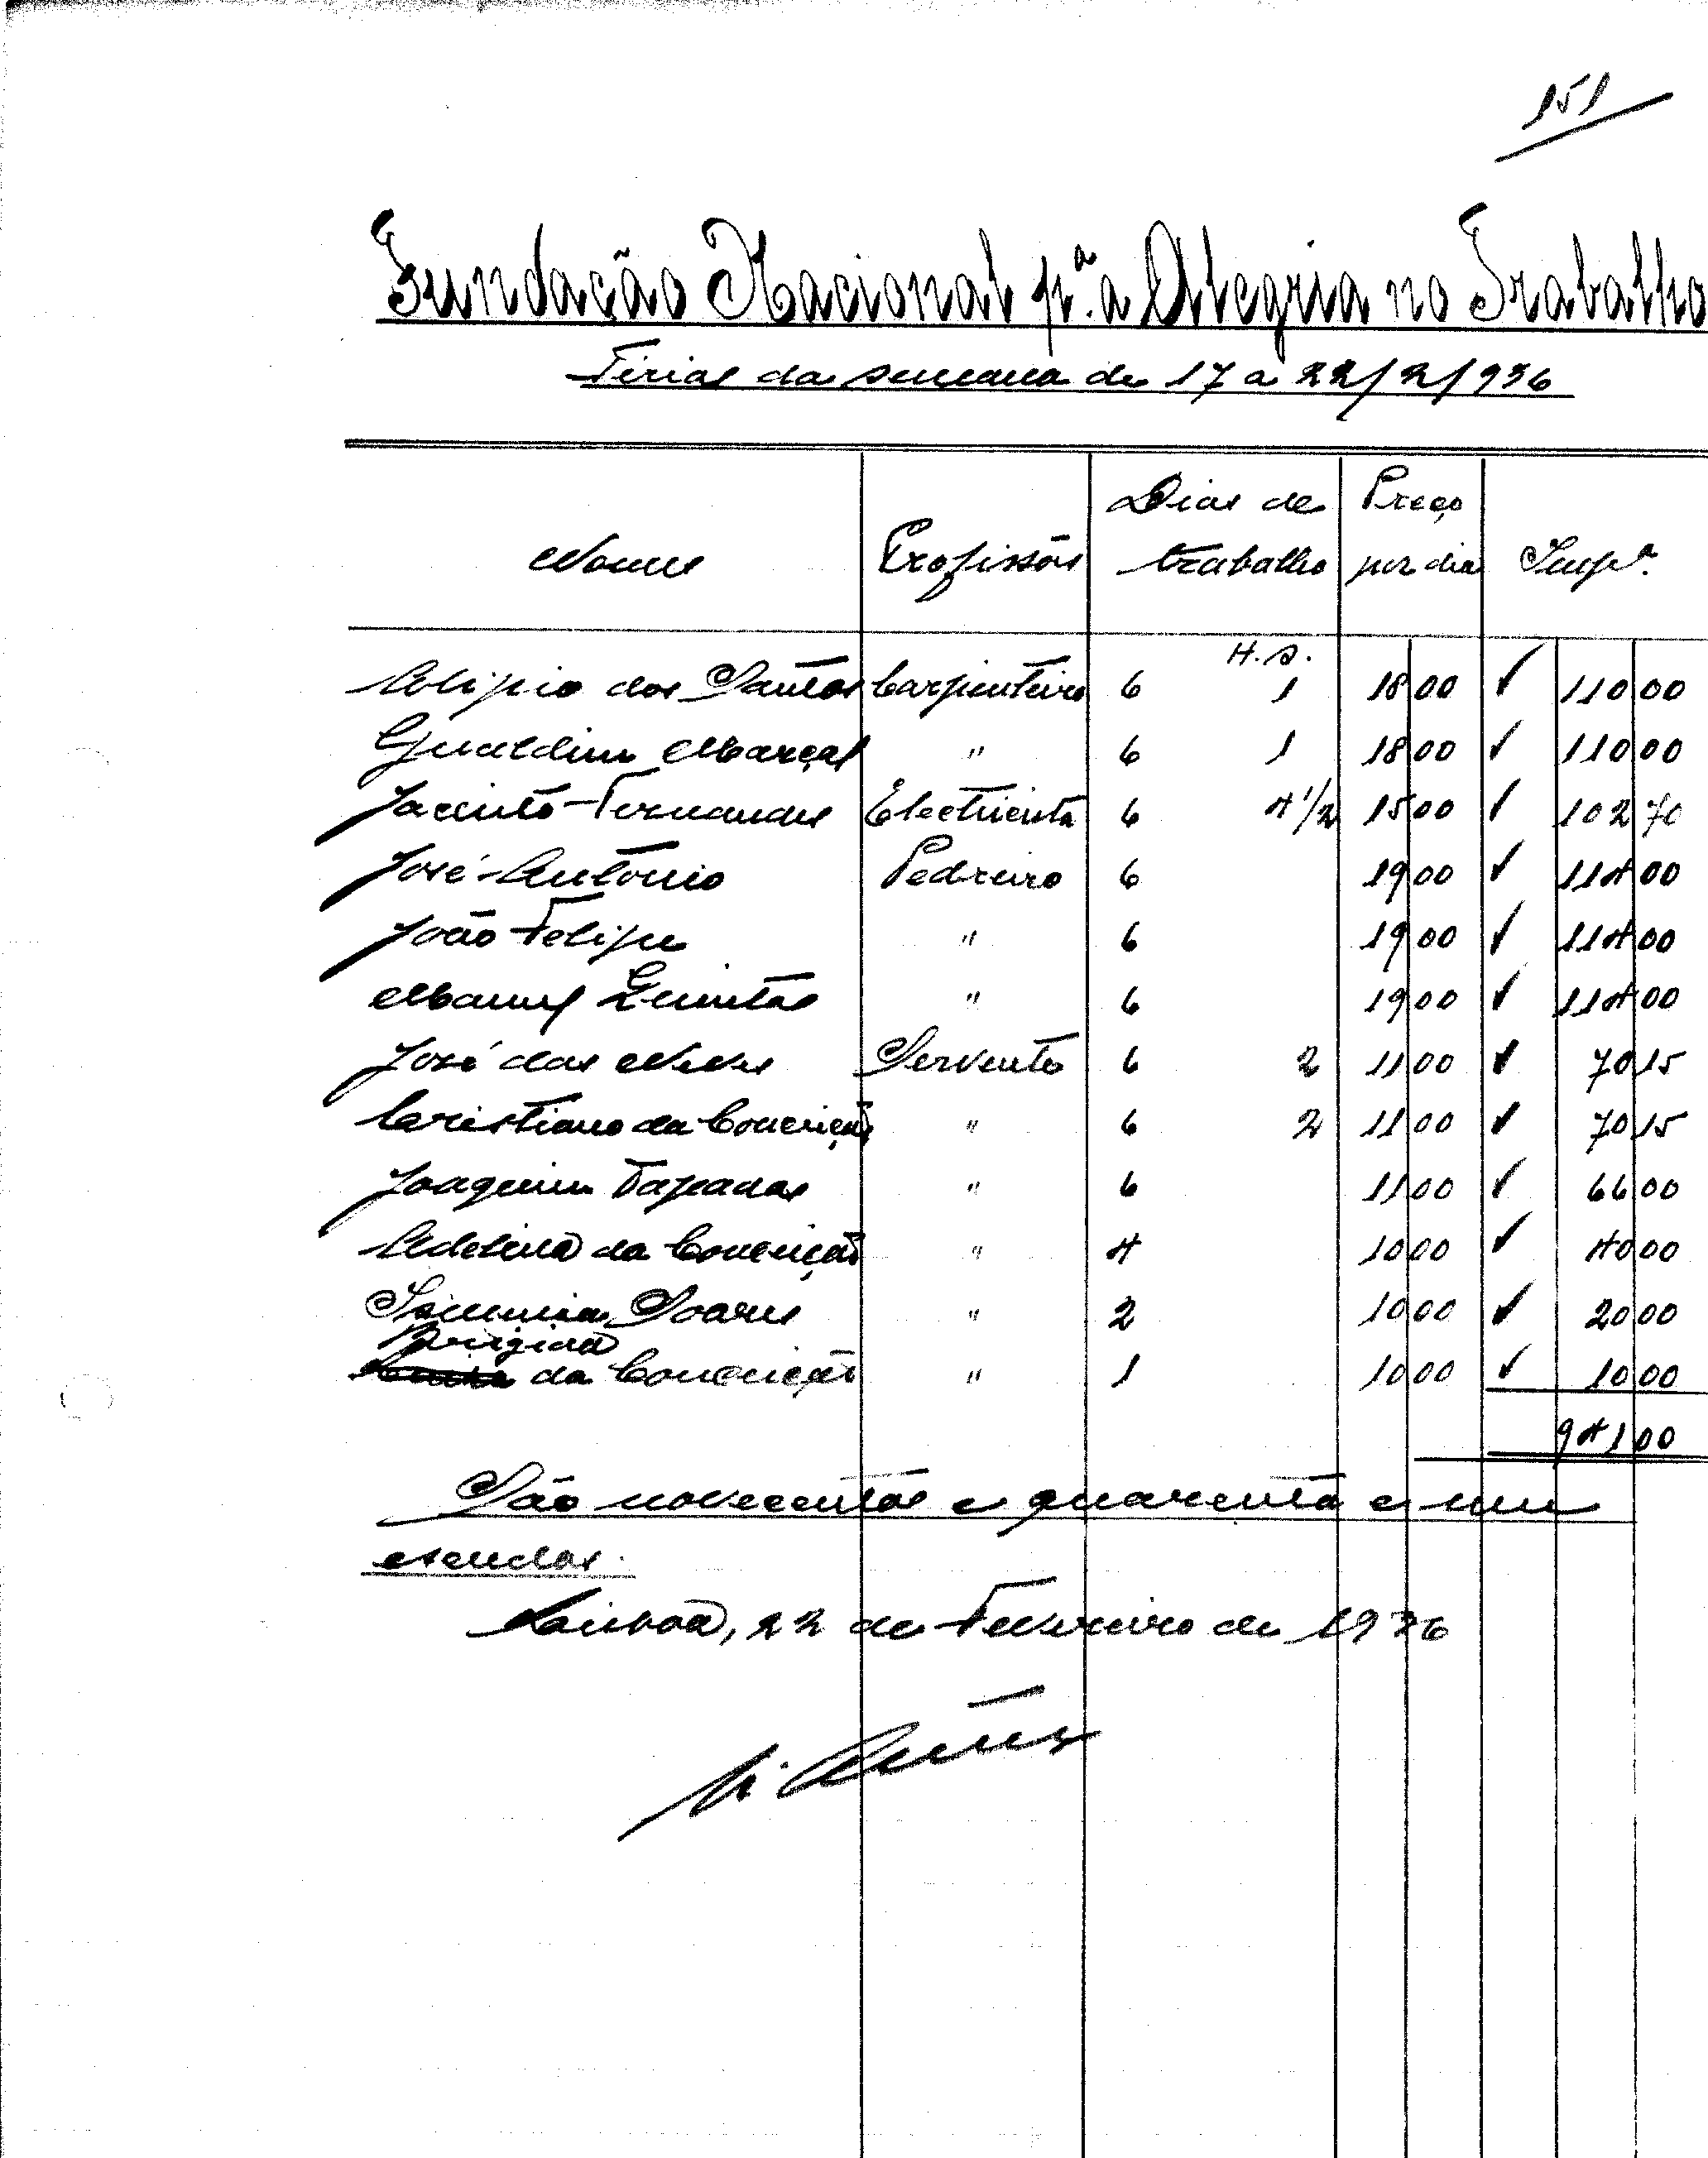 151
Fundação Nacional pª. a Alegria no Trabalho
Férias da semana de 17 a 22/2/936
Nomes Profissões Dias de trabalho Preço por dia Impª.
H.S.
Alipio dos Santos Carpinteiro 6 1 18 00 ✓ 110 00
Gualdim Marçal " 6 1 18 00 ✓ 110 00
Jacinto Fernandes Electricista 6 4 1/2 15 00 ✓ 102 70
José António Pedreiro 6 19 00 ✓ 114 00
João Felipe " 6 19 00 ✓ 114 00
Manuel Quintas " 6 19 00 ✓ 114 00
José das Neves Servente 6 2 11 00 ✓ 70 15
Cristiano da Conceição " 6 2 11 00 ✓ 70 15
Joaquim Tapadas " 6 11 00 ✓ 66 00
Adelina da Conceição " 4 10 00 ✓ 40 00
Ismenia Soares " 2 10 00 ✓ 20 00
Brigida
da Conceição " 1 10 00 ✓ 10 00
941 00
São novecentos e quarenta e um
escudos.
Lisboa, 22 de Fevereiro de 1936